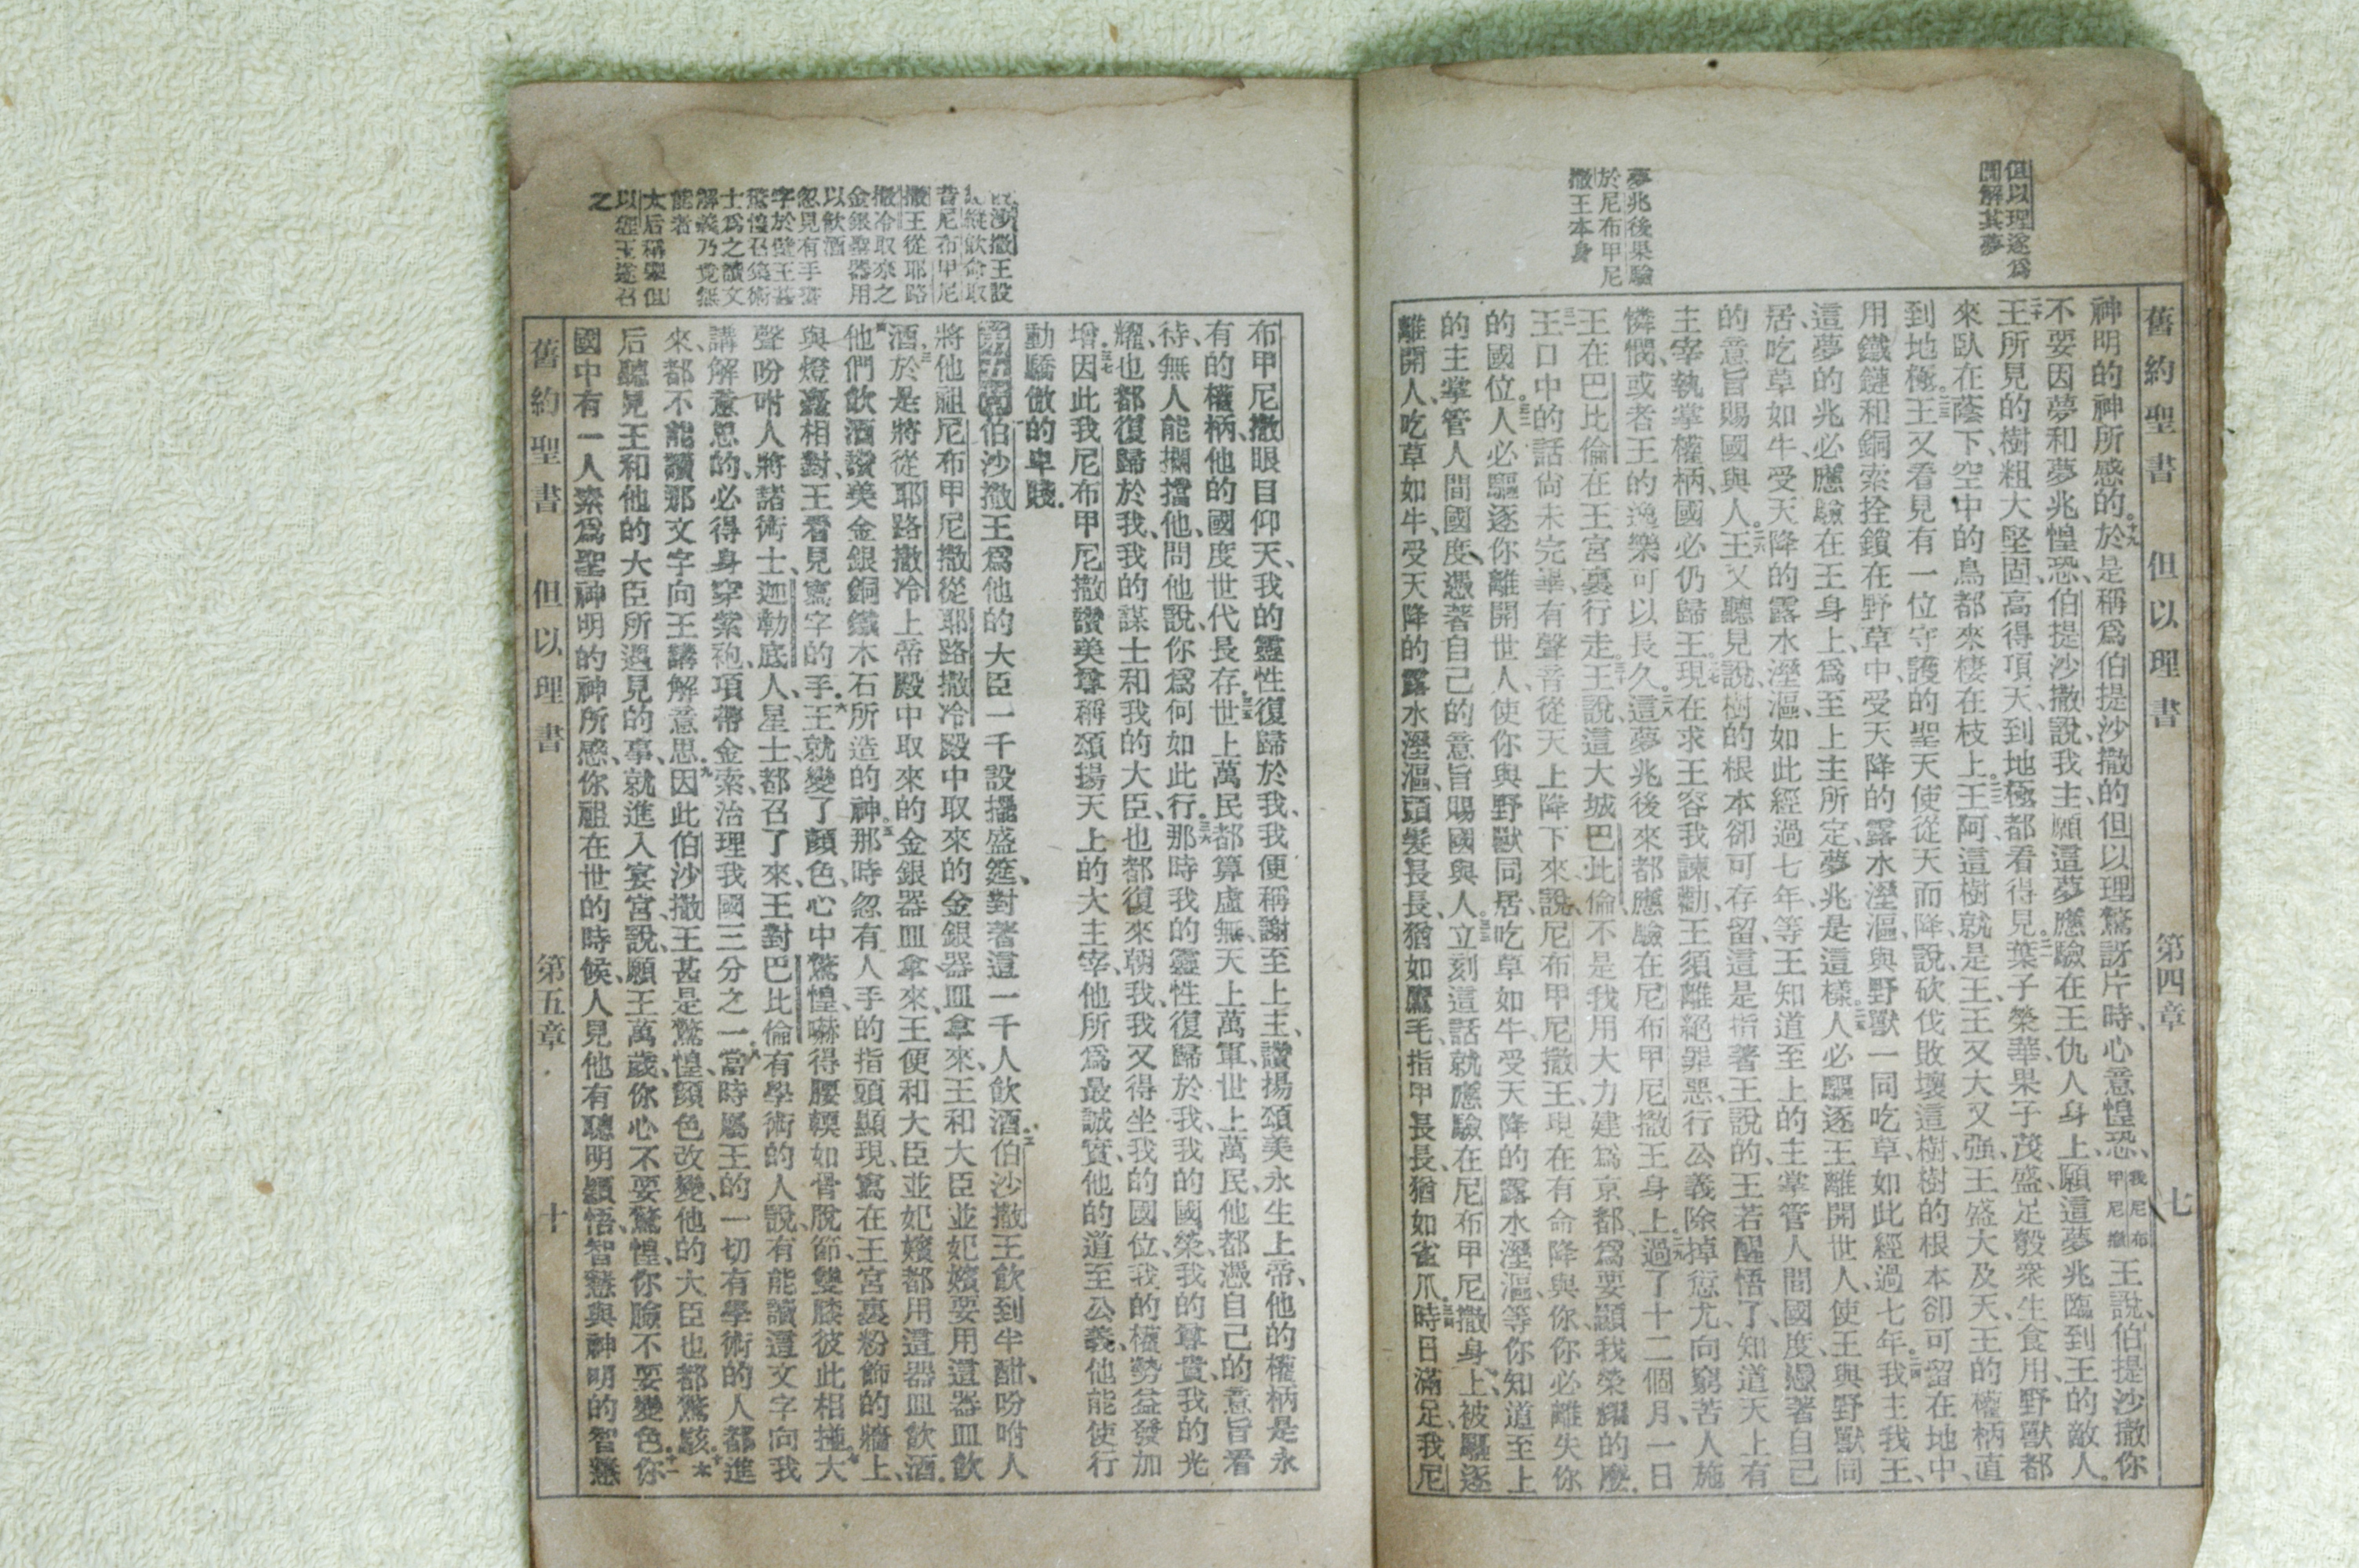 舊約聖書 但以理書 第四章 七
但以理遂爲
圓解其夢
夢兆後果驗
於尼布甲尼
撒王本身
神明的神所感的。十九於是稱爲伯提沙撒的但以理驚訝片時、心意惶恐、我尼布甲尼撒王說、伯提沙撒你
不要因夢和夢兆惶恐、伯提沙撒說、我主、願這夢應驗在王仇人身上、願這夢兆臨到王的敵人。
二十王所見的樹粗大堅固、高得頂天、到地極都看得見。二一葉子榮華、果子茂盛、足彀衆生食用、野獸都
來臥在蔭下、空中的鳥都來棲在枝上。二二王阿、這樹就是王、王又大又强、王盛大及天、王的權柄直
到地極。二三王又看見有一位守護的聖天使從天而降、說、砍伐敗壞這樹、樹的根本卻可留在地中、
用鐵鏈和銅索拴鎖在野草中、受天降的露水溼漚、與野獸一同吃草、如此經過七年。二四我主我王、
這夢的兆必應驗在王身上、爲至上主所定、夢兆是這樣。二五人必驅逐王離開世人、使王與野獸同
居、吃草如牛、受天降的露水溼漚、如此經過七年、等王知道至上的主掌管人間國度、憑著自己
的意旨賜國與人。二六王又聽見說、樹的根本卻可存留、這是指著王說的、王若醒悟了、知道天上有
主宰執掌權柄、國必仍歸王。二七現在求王容我諫勸、王須離絕罪惡、行公義、除掉愆尤、向窮苦人施
憐憫、或者王的逸樂可以長久。二八這夢兆後來都應驗在尼布甲尼撒王身上。二九過了十二個月、一日
王在巴比倫在王宮裏行走。三十王說、這大城巴比倫、不是我用大力建爲京都、爲要顯我榮耀的麼。
三一王口中的話尚未完畢、有聲音從天上降下來說、尼布甲尼撒王、現在有命降與你、你必離失你
的國位。三二人必驅逐你離開世人、使你與野獸同居、吃草如牛、受天降的露水溼漚、等你知道至上
的主掌管人間國度、憑著自己的意旨賜國與人。三三立刻這話就應驗在尼布甲尼撒身上、被驅逐
離開人、吃草如牛、受天降的露水溼漚、頭髮長長、猶如鷹毛、指甲長長、猶如雀爪。三四時日滿足、我尼
沙撒王設
縱飲命取
昔尼布甲尼
撒王從耶路
撒冷取來之
金銀聖器用
以飲酒
忽見有手書
字於壁王甚
驚惶召第術
士爲之讀文
解義乃竟無
能者
太后稱舉但
以理王遂召
之
布甲尼撒眼目仰天、我的靈性復歸於我、我便稱謝至上主、讚揚頌美永生上帝、他的權柄是永
有的權柄、他的國度世代長存。三五世上萬民都算虛無、天上萬軍、世上萬民、他都憑自己的意旨看
待、無人能攔擋他、問他說、你爲何如此行。三六那時我的靈性復歸於我、我的國榮、我的尊貴、我的光
耀、也都復歸於我、我的謀士和我的大臣、也都復來朝我、我又得坐我的國位、我的權勢益發加
增。三七因此我尼布甲尼撒讚美尊稱頌揚天上的大主宰、他所爲最誠實、他的道至公義、他能使行
動驕傲的卑賤。
第五章伯沙撒王爲他的大臣一千設擺盛筵、對著這一千人飲酒。二伯沙撒王飲到半酣、吩咐人
將他祖尼布甲尼撒從耶路撒冷殿中取來的金銀器皿拿來、王和大臣並妃嬪要用這器皿飲
酒。三於是將從耶路撒冷上帝殿中取來的金銀器皿拿來、王便和大臣並妃嬪都用這器皿飲酒。
四他們飲酒讚美金銀銅鐵木石所造的神。五那時忽有人手的指頭顯現、寫在王宮裏粉飾的牆上、
與燈臺相對、王看見寫字的手。六王就變了顏色、心中驚惶、嚇得腰輭如骨脫節、雙膝彼此相撞。七大
聲吩咐人將諸術士、迦勒底人、星士、都召了來、王對巴比倫有學術的人說、有能讀這文字向我
講解意思的、必得身穿紫袍、項帶金索、治理我國三分之一。八當時屬王的一切有學術的人都進
來、都不能讀那文字向王講解意思。九因此伯沙撒王甚是驚惶、顏色改變、他的大臣也都驚駭。十*太
后聽見王和他的大臣所遇見的事、就進入宴宮、說、願王萬歲、你心不要驚惶、你臉不要變色。十一你
國中有一人素爲聖神明的神所感、你祖在世的時候、人見他有聰明穎悟、智慧與神明的智慧
舊約聖書 但以理書 第五章 十